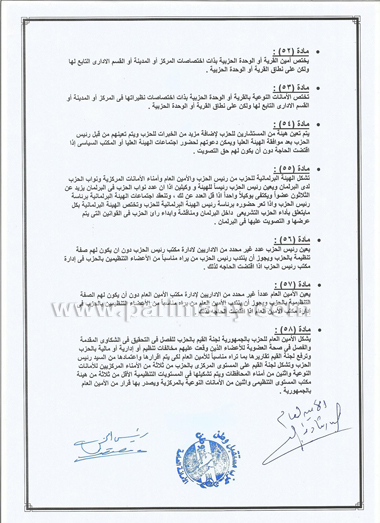 مادة (٥٢) :
يختص أمين القرية أو الوحدة الحزبية بذات اختصاصات المركز أو المدينة أو القسم الادارى التابع لها
ولكن على نطاق القرية أو الوحدة الحزبية .
مادة (٥٣) :
تختص الأمانات النوعية بالقرية أو الوحدة الحزبية بذات اختصاصات نظيراتها فى المركز أو المدينة أو
القسم الادارى التابع لها ولكن على نطاق القرية أو الوحدة الحزبية .
مادة (٥٤) :
يتم تعين هيئة من المستشارين للحزب لإضافة مزيد من الخبرات للحزب ويتم تعينهم من قبل رئيس
الحزب بعد موافقة الهيئة العليا ويمكن دعوتهم لحضور اجتماعات الهيئة العليا أو المكتب السياسى إذا
اقتضت الحاجة دون أن يكون لهم حق التصويت .
مادة (٥٥) :
تشكل الهيئة البرلمانية للحزب من رئيس الحزب والأمين العام وأمناء الأمانات المركزية ونواب الحزب
لدى البرلمان ويعين رئيس الحزب رئيساً للهيئة و وكيلين إذا كان عدد نواب الحزب فى البرلمان يزيد عن
الثلاثون عضواً ويكتفى بوكيلاً واحداً اذا قل العدد عن ذلك ، وتعقد اجتماعات الهيئة البرلمانية برئاسة
رئيس الحزب واذا تعذر حضوره برئاسة رئيس الهيئة البرلمانية للحزب وتختص الهيئة البرلمانية بكل
مايتعلق بأداء الحزب التشريعى داخل البرلمان ومناقشة وابداء راى الحزب فى القوانين التى يتم
عرضها و التصويت عليها فى البرلمان .
مادة (٥٦) :
يعين رئيس الحزب عدد غير محدد من الاداريين لإدارة مكتب رئيس الحزب دون أن يكون لهم صفة
تنظيمية بالحزب ويجوز أن ينتدب رئيس الحزب من يراه مناسباً من الأعضاء التنظيميين بالحزب فى إدارة
مكتب رئيس الحزب اذا اقتضت الحاجة لذلك .
مادة (٥٧) :
يعين الأمين العام عدداً غير محدد من الاداريين لإدارة مكتب الأمين العام دون أن يكون لهم الصفة
التنظيمية بالحزب ويجوز أن ينتدب الأمين العام من يراه مناسباً من الأعضاء التنظيميين بالحزب فى
إدارة مكتب الأمين العام اذا اقتضت الحاجة لذلك
مادة (٥٨) :
يشكل الأمين العام للحزب بالجمهورية لجنة القيم بالحزب للفصل فى التحقيق فى الشكاوى المقدمة
والفصل فى صحة العضوية للأعضاء الذين وقعت عليهم مخالفات تنظيم أو إدارية أو مالية بالحزب
وترفع لجنة القيم تقاريرها بما تراه مناسباً للأمين العام لكى يتم اقرارها واعتمادها من السيد رئيس
الحزب وتشكل لجنة القيم على المستوى المركزى بالحزب من ثلاثة من الأمناء المركزيين للأمانات
النوعية واثنين من أمناء المحافظات ويتم تشكيلها فى المستويات التنظيمية الأقل من ثلاثة من هيئة
مكتب المستوى التنظيمى واثنين من الأمانات النوعية بالمركزية ويصدر بها قرار من الأمين العام
بالجمهورية .
الأمين العام
رئيس الحزب
حزب مستقبل وطن